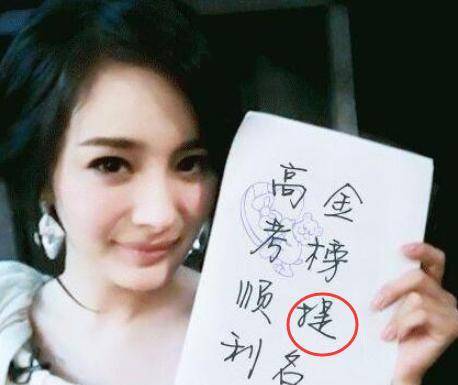 高考顺利
金榜提名